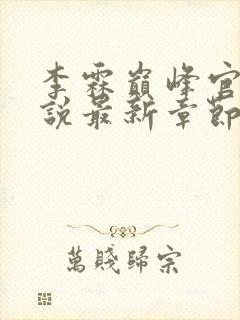 李霖巔峰官
說最新章節
萬賤歸宗